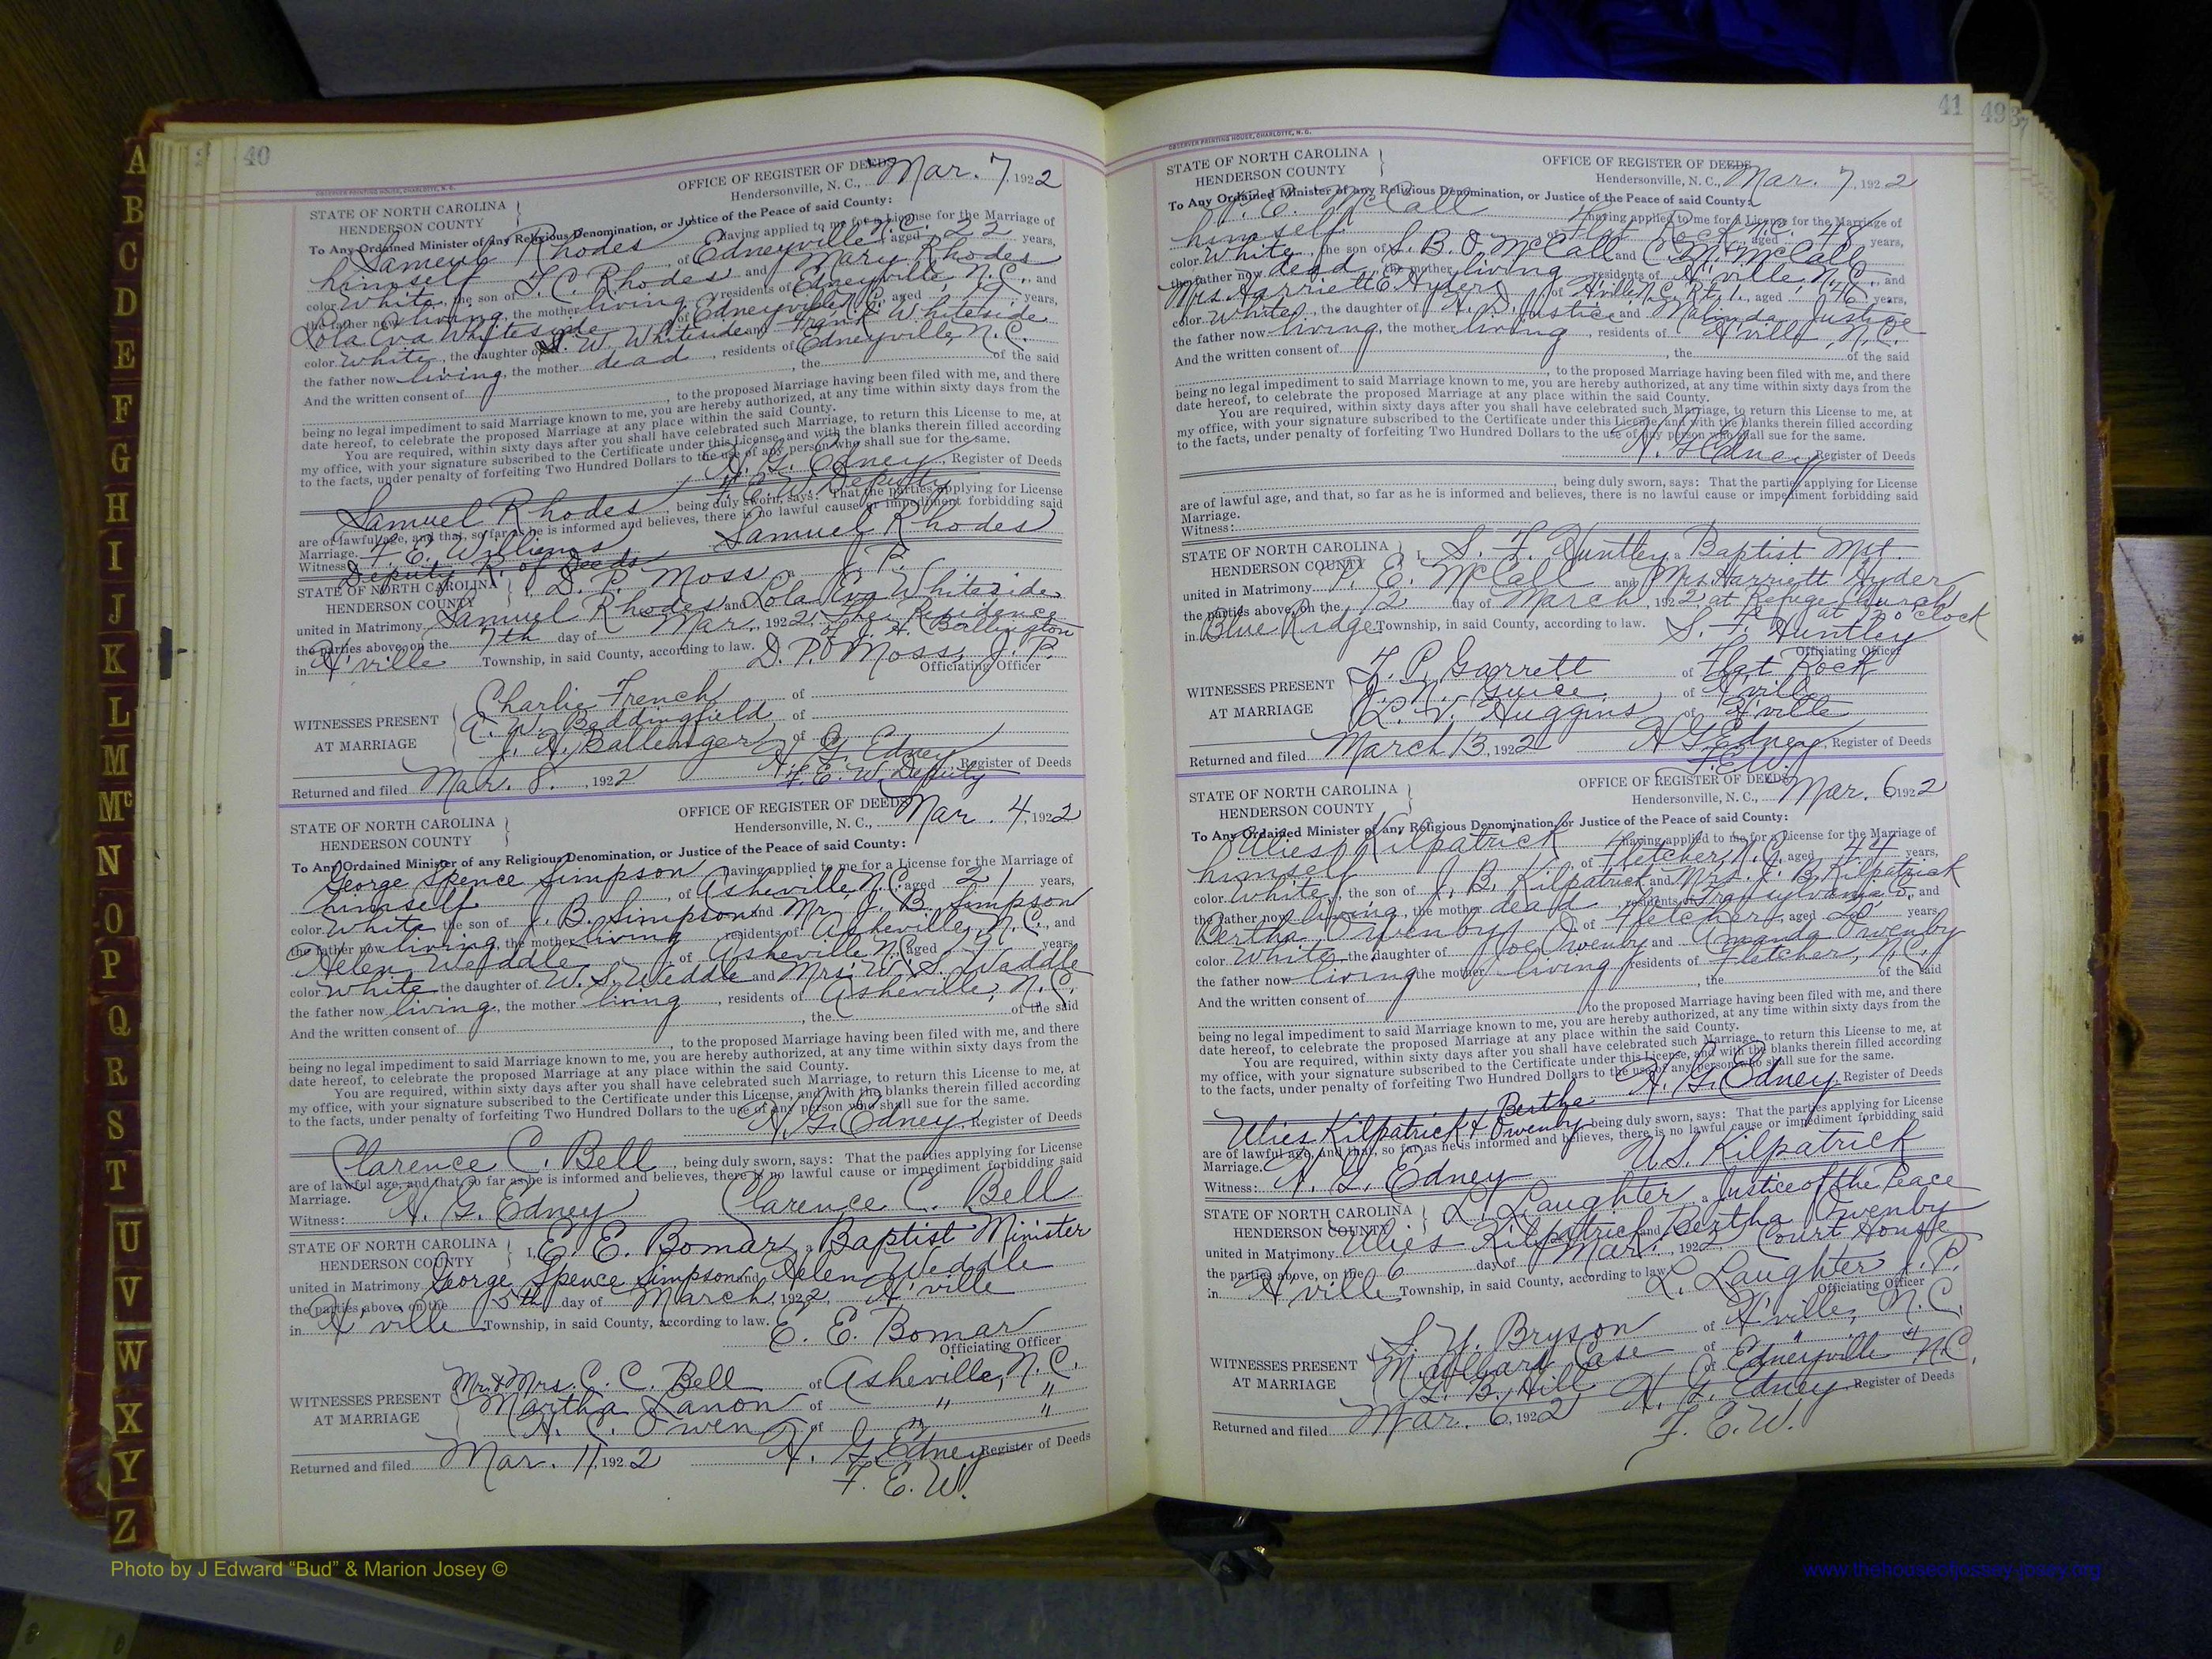 A
B
C
D
E
F
G
H
I
J
K
L
M
Mc
N
O
P
Q
R
S
T
U
V
W
X
Y
Z
40
OBSERVER PRINTING HOUSE, CHARLOTTE, N. C.
STATE OF NORTH CAROLINA
HENDERSON COUNTY
OFFICE OF REGISTER OF DEEDS
Hendersonville, N. C., Mar. 7, 1922
To Any Ordained Minister of any Religious Denomination, or Justice of the Peace of said County:
Samuel Rhodes having applied to me for a License for the Marriage of
himself, of Edneyville, N.C. aged 22 years,
color White the son of T. C. Rhodes and Mary Rhodes
the father now living, the mother living residents of Edneyville, N.C., and
Lola Eva Whiteside of Edneyville, N.C., aged years,
color White, the daughter of W. Whiteside and Whiteside
the father now living, the mother dead, residents of Edneyville, N.C.
And the written consent of , the of the said
, to the proposed Marriage having been filed with me, and there
being no legal impediment to said Marriage known to me, you are hereby authorized, at any time within sixty days from the
date hereof, to celebrate the proposed Marriage at any place within the said County.
You are required, within sixty days after you shall have celebrated such Marriage, to return this License to me, at
my office, with your signature subscribed to the Certificate under this License, and with the blanks therein filled according
to the facts, under penalty of forfeiting Two Hundred Dollars to the use of any person who shall sue for the same.
H. G. Edney, Register of Deeds
F. E. W. Deputy
Samuel Rhodes, being duly sworn, says: That the parties applying for License
are of lawful age, and that, so far as he is informed and believes, there is no lawful cause or impediment forbidding said
Marriage. Samuel Rhodes
Witness: F. E. Williams
Deputy R. of Deeds
STATE OF NORTH CAROLINA
HENDERSON COUNTY
I, D. P. Moss, a J. P.
united in Matrimony Samuel Rhodes and Lola Eva Whiteside
the parties above, on the 7th day of Mar., 1922, Residence
in H'ville Township, in said County, according to law.
D. P. Moss, J. P.
Officiating Officer
WITNESSES PRESENT
AT MARRIAGE
Charlie French of
A. W. Beddingfield of
J. H. Ballenger of
Returned and filed Mar. 8, 1922 H. G. Edney Register of Deeds
F. E. W. Deputy
STATE OF NORTH CAROLINA
HENDERSON COUNTY
OFFICE OF REGISTER OF DEEDS
Hendersonville, N. C., Mar. 4, 1922
To Any Ordained Minister of any Religious Denomination, or Justice of the Peace of said County:
George Spence Simpson having applied to me for a License for the Marriage of
himself, of Asheville, N.C. aged 21 years,
color White the son of J. B. Simpson and Mr. J. B. Simpson
the father now living, the mother living residents of Asheville, N.C., and
Helen Weddle of Asheville N.C. aged 19 years,
color White the daughter of W. S. Weddle and Mrs. W. S. Waddle
the father now living, the mother living, residents of Asheville, N.C.
And the written consent of , the of the said
, to the proposed Marriage having been filed with me, and there
being no legal impediment to said Marriage known to me, you are hereby authorized, at any time within sixty days from the
date hereof, to celebrate the proposed Marriage at any place within the said County.
You are required, within sixty days after you shall have celebrated such Marriage, to return this License to me, at
my office, with your signature subscribed to the Certificate under this License, and with the blanks therein filled according
to the facts, under penalty of forfeiting Two Hundred Dollars to the use of any person who shall sue for the same.
H. G. Edney, Register of Deeds
Clarence C. Bell, being duly sworn, says: That the parties applying for License
are of lawful age, and that, so far as he is informed and believes, there is no lawful cause or impediment forbidding said
Marriage.
Witness: H. G. Edney Clarence C. Bell
STATE OF NORTH CAROLINA
HENDERSON COUNTY
I, E. E. Bomar, a Baptist Minister
united in Matrimony George Spence Simpson and Helen Weddle
the parties above, on the 5th day of March, 1922, H'ville
in H'ville Township, in said County, according to law.
E. E. Bomar
Officiating Officer
WITNESSES PRESENT
AT MARRIAGE
Mr. & Mrs. C. C. Bell of Asheville, N.C.
Martha Lanon of " "
H. C. Owen of " "
Returned and filed Mar. 11, 1922 H. G. Edney Register of Deeds
F. E. W.
41
49
OBSERVER PRINTING HOUSE, CHARLOTTE, N. C.
STATE OF NORTH CAROLINA
HENDERSON COUNTY
OFFICE OF REGISTER OF DEEDS
Hendersonville, N. C., Mar. 7, 1922
To Any Ordained Minister of any Religious Denomination, or Justice of the Peace of said County:
P. E. McCall having applied to me for a License for the Marriage of
himself of Flat Rock N.C. aged 48 years,
color White, the son of S. B. O. McCall and C. M. McCall
the father now dead, the mother living residents of H'ville, N.C., and
Mrs Harriett E Hyder, of H'ville N.C. Rt. 1., aged 46 years,
color White, the daughter of Justice and Malinda Justice
the father now living, the mother living, residents of H'ville, N.C.
And the written consent of , the of the said
, to the proposed Marriage having been filed with me, and there
being no legal impediment to said Marriage known to me, you are hereby authorized, at any time within sixty days from the
date hereof, to celebrate the proposed Marriage at any place within the said County.
You are required, within sixty days after you shall have celebrated such Marriage, to return this License to me, at
my office, with your signature subscribed to the Certificate under this License, and with the blanks therein filled according
to the facts, under penalty of forfeiting Two Hundred Dollars to the use of any person who shall sue for the same.
H. G. Edney, Register of Deeds
, being duly sworn, says: That the parties applying for License
are of lawful age, and that, so far as he is informed and believes, there is no lawful cause or impediment forbidding said
Marriage.
Witness:
STATE OF NORTH CAROLINA
HENDERSON COUNTY
I, S. F. Huntley, a Baptist
united in Matrimony P. E. McCall and Mrs. Harriett Hyder
the parties above, on the 12 day of March, 1922 at Refuge Church
in Blue Ridge Township, in said County, according to law. at o'clock
S. F. Huntley
Officiating Officer
WITNESSES PRESENT
AT MARRIAGE
F. P. Garrett of Flat Rock
J. N. Guice of H'ville
L. V. Huggins of H'ville
Returned and filed March 13, 1922 H G Edney, Register of Deeds
F.E.W.
STATE OF NORTH CAROLINA
HENDERSON COUNTY
OFFICE OF REGISTER OF DEEDS
Hendersonville, N. C., Mar. 6, 1922
To Any Ordained Minister of any Religious Denomination, or Justice of the Peace of said County:
Ulies Kilpatrick having applied to me for a License for the Marriage of
himself of Fletcher, N.C. aged 44 years,
color White, the son of J. B. Kilpatrick and Mrs. J. B. Kilpatrick
the father now living, the mother dead, residents of Transylvania Co, and
Bertha Owenby, of Fletcher, aged years
color White the daughter of Joe Owenby and Amanda Owenby
the father now living the mother living residents of Fletcher, N.C.
And the written consent of , the of the said
to the proposed Marriage having been filed with me, and there
being no legal impediment to said Marriage known to me, you are hereby authorized, at any time within sixty days from the
date hereof, to celebrate the proposed Marriage at any place within the said County.
You are required, within sixty days after you shall have celebrated such Marriage, to return this License to me, at
my office, with your signature subscribed to the Certificate under this License, and with the blanks therein filled according
to the facts, under penalty of forfeiting Two Hundred Dollars to the use of any person who shall sue for the same.
H. G. Edney, Register of Deeds
Ulies Kilpatrick & Bertha Owenby, being duly sworn, says: That the parties applying for License
are of lawful age, and that, so far as he is informed and believes, there is no lawful cause or impediment forbidding said
Marriage. U S. Kilpatrick
Witness: H. G. Edney
STATE OF NORTH CAROLINA
HENDERSON COUNTY
I, L. Laughter, a Justice of the Peace
united in Matrimony Ulies Kilpatrick and Bertha Owenby
the parties above, on the 6 day of Mar., 1922, Court House
in H'ville Township, in said County, according to law
L. Laughter J. P.
Officiating Officer
WITNESSES PRESENT
AT MARRIAGE
S. Y. Bryson of H'ville, N.C.
Millard Case of " "
L. B. Hill of Edneyville N.C.
Returned and filed Mar. 6, 1922 H. G. Edney Register of Deeds
F. E. W.
Photo by J Edward “Bud” & Marion Josey ©
www.thehouseofjossey-josey.org